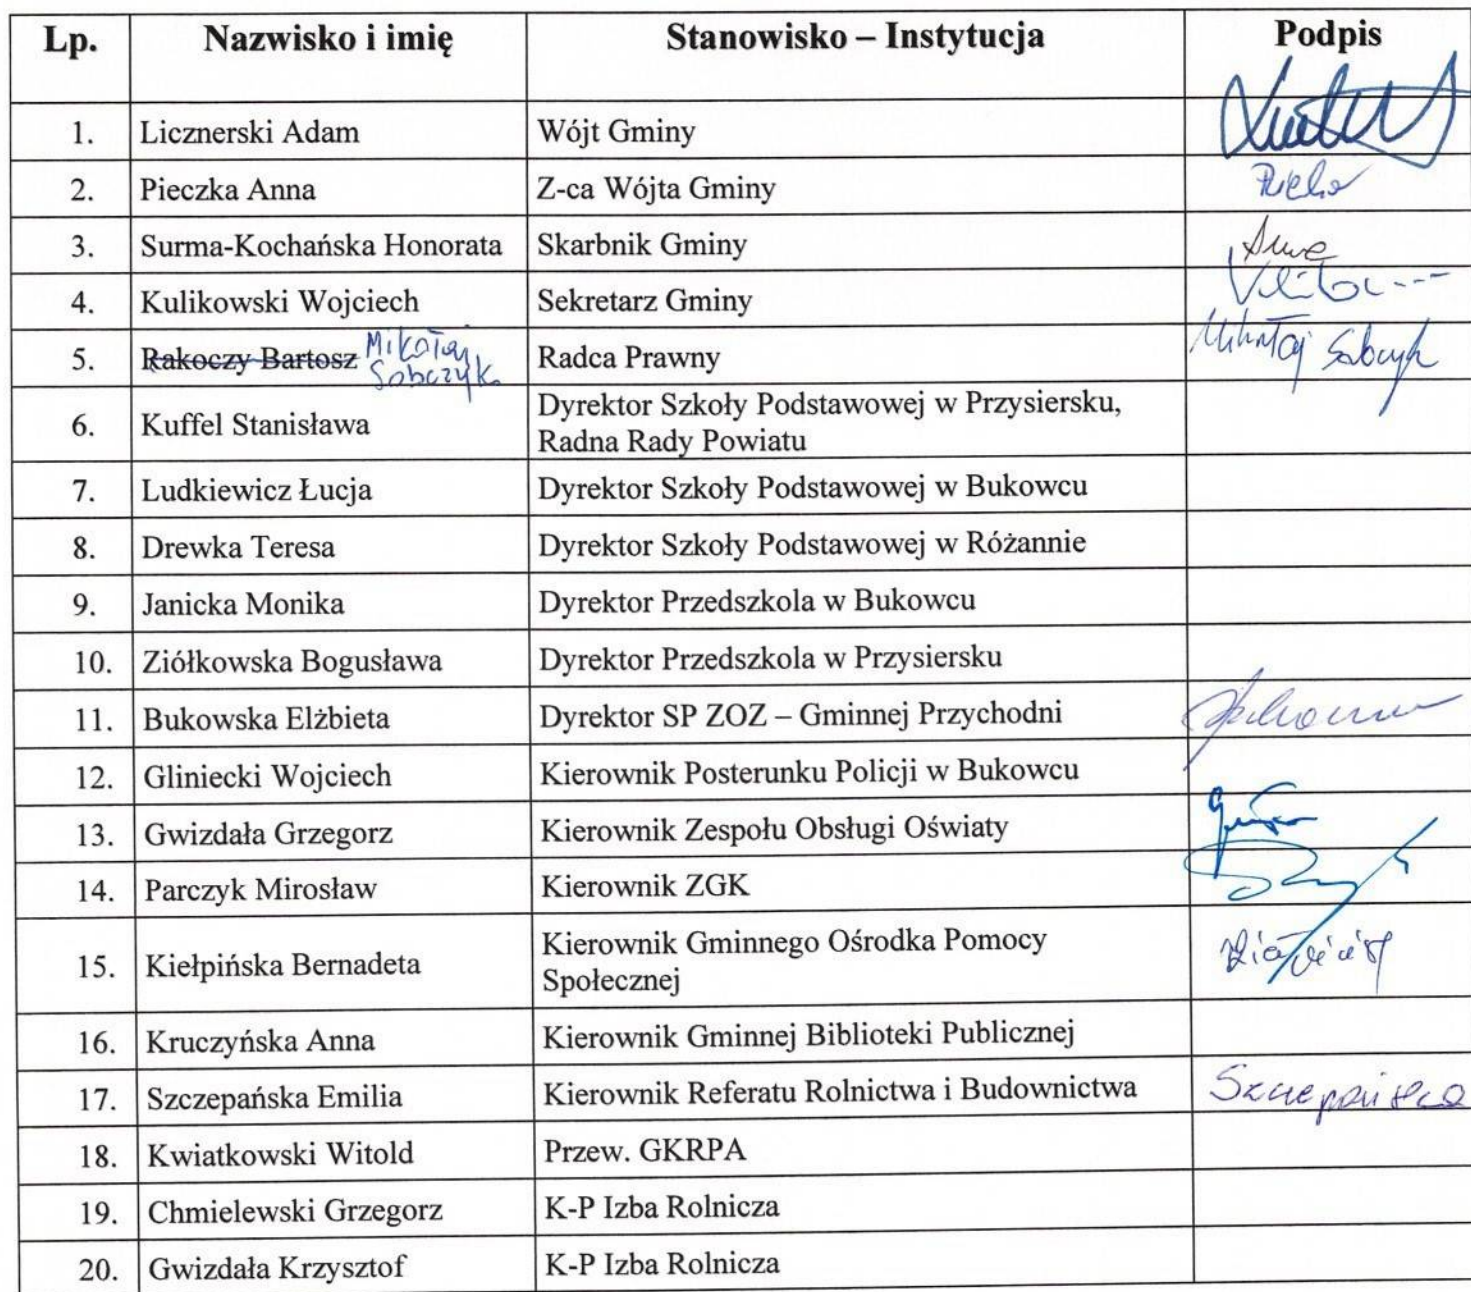 Lp. Nazwisko i imię Stanowisko – Instytucja Podpis
1. Licznerski Adam Wójt Gminy
2. Pieczka Anna Z-ca Wójta Gminy
3. Surma-Kochańska Honorata Skarbnik Gminy
4. Kulikowski Wojciech Sekretarz Gminy
5. Rakoczy Bartosz Mikołaj Sobczyk Radca Prawny Mikołaj Sobczyk
6. Kuffel Stanisława Dyrektor Szkoły Podstawowej w Przysiersku,
Radna Rady Powiatu
7. Ludkiewicz Łucja Dyrektor Szkoły Podstawowej w Bukowcu
8. Drewka Teresa Dyrektor Szkoły Podstawowej w Różannie
9. Janicka Monika Dyrektor Przedszkola w Bukowcu
10. Ziółkowska Bogusława Dyrektor Przedszkola w Przysiersku
11. Bukowska Elżbieta Dyrektor SP ZOZ – Gminnej Przychodni
12. Gliniecki Wojciech Kierownik Posterunku Policji w Bukowcu
13. Gwizdała Grzegorz Kierownik Zespołu Obsługi Oświaty
14. Parczyk Mirosław Kierownik ZGK
15. Kiełpińska Bernadeta Kierownik Gminnego Ośrodka Pomocy
Społecznej
16. Kruczyńska Anna Kierownik Gminnej Biblioteki Publicznej
17. Szczepańska Emilia Kierownik Referatu Rolnictwa i Budownictwa Szczepańska
18. Kwiatkowski Witold Przew. GKRPA
19. Chmielewski Grzegorz K-P Izba Rolnicza
20. Gwizdała Krzysztof K-P Izba Rolnicza